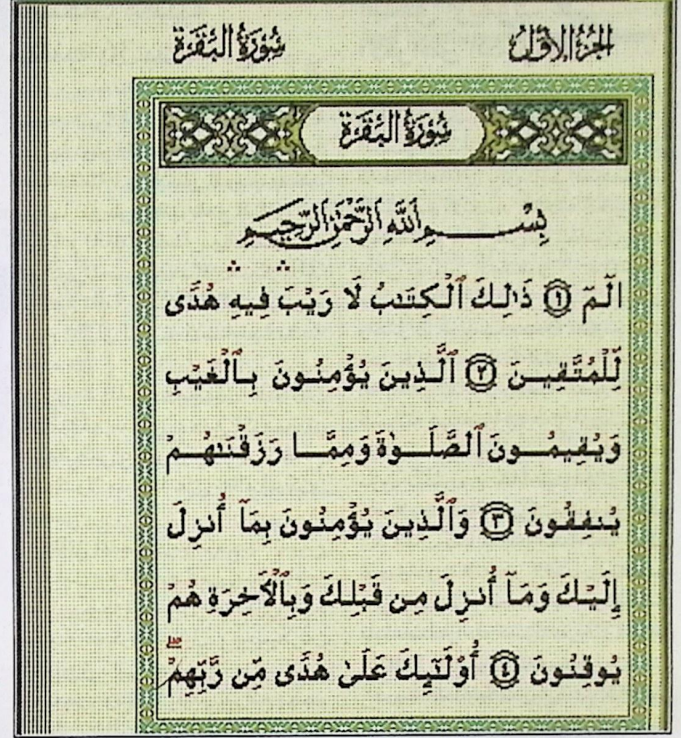 الجزء الأول
سورة البقرة
سورة البقرة
بسم الله الرحمن الرحيم
الٓمٓ ١ ذَٰلِكَ ٱلْكِتَٰبُ لَا رَيْبَ ۛ فِيهِ ۛ هُدًى
لِّلْمُتَّقِينَ ٢ ٱلَّذِينَ يُؤْمِنُونَ بِٱلْغَيْبِ
وَيُقِيمُونَ ٱلصَّلَوٰةَ وَمِمَّا رَزَقْنَٰهُمْ
يُنفِقُونَ ٣ وَٱلَّذِينَ يُؤْمِنُونَ بِمَآ أُنزِلَ
إِلَيْكَ وَمَآ أُنزِلَ مِن قَبْلِكَ وَبِٱلْءَاخِرَةِ هُمْ
يُوقِنُونَ ٤ أُو۟لَٰٓئِكَ عَلَىٰ هُدًى مِّن رَّبِّهِمْ ۖ